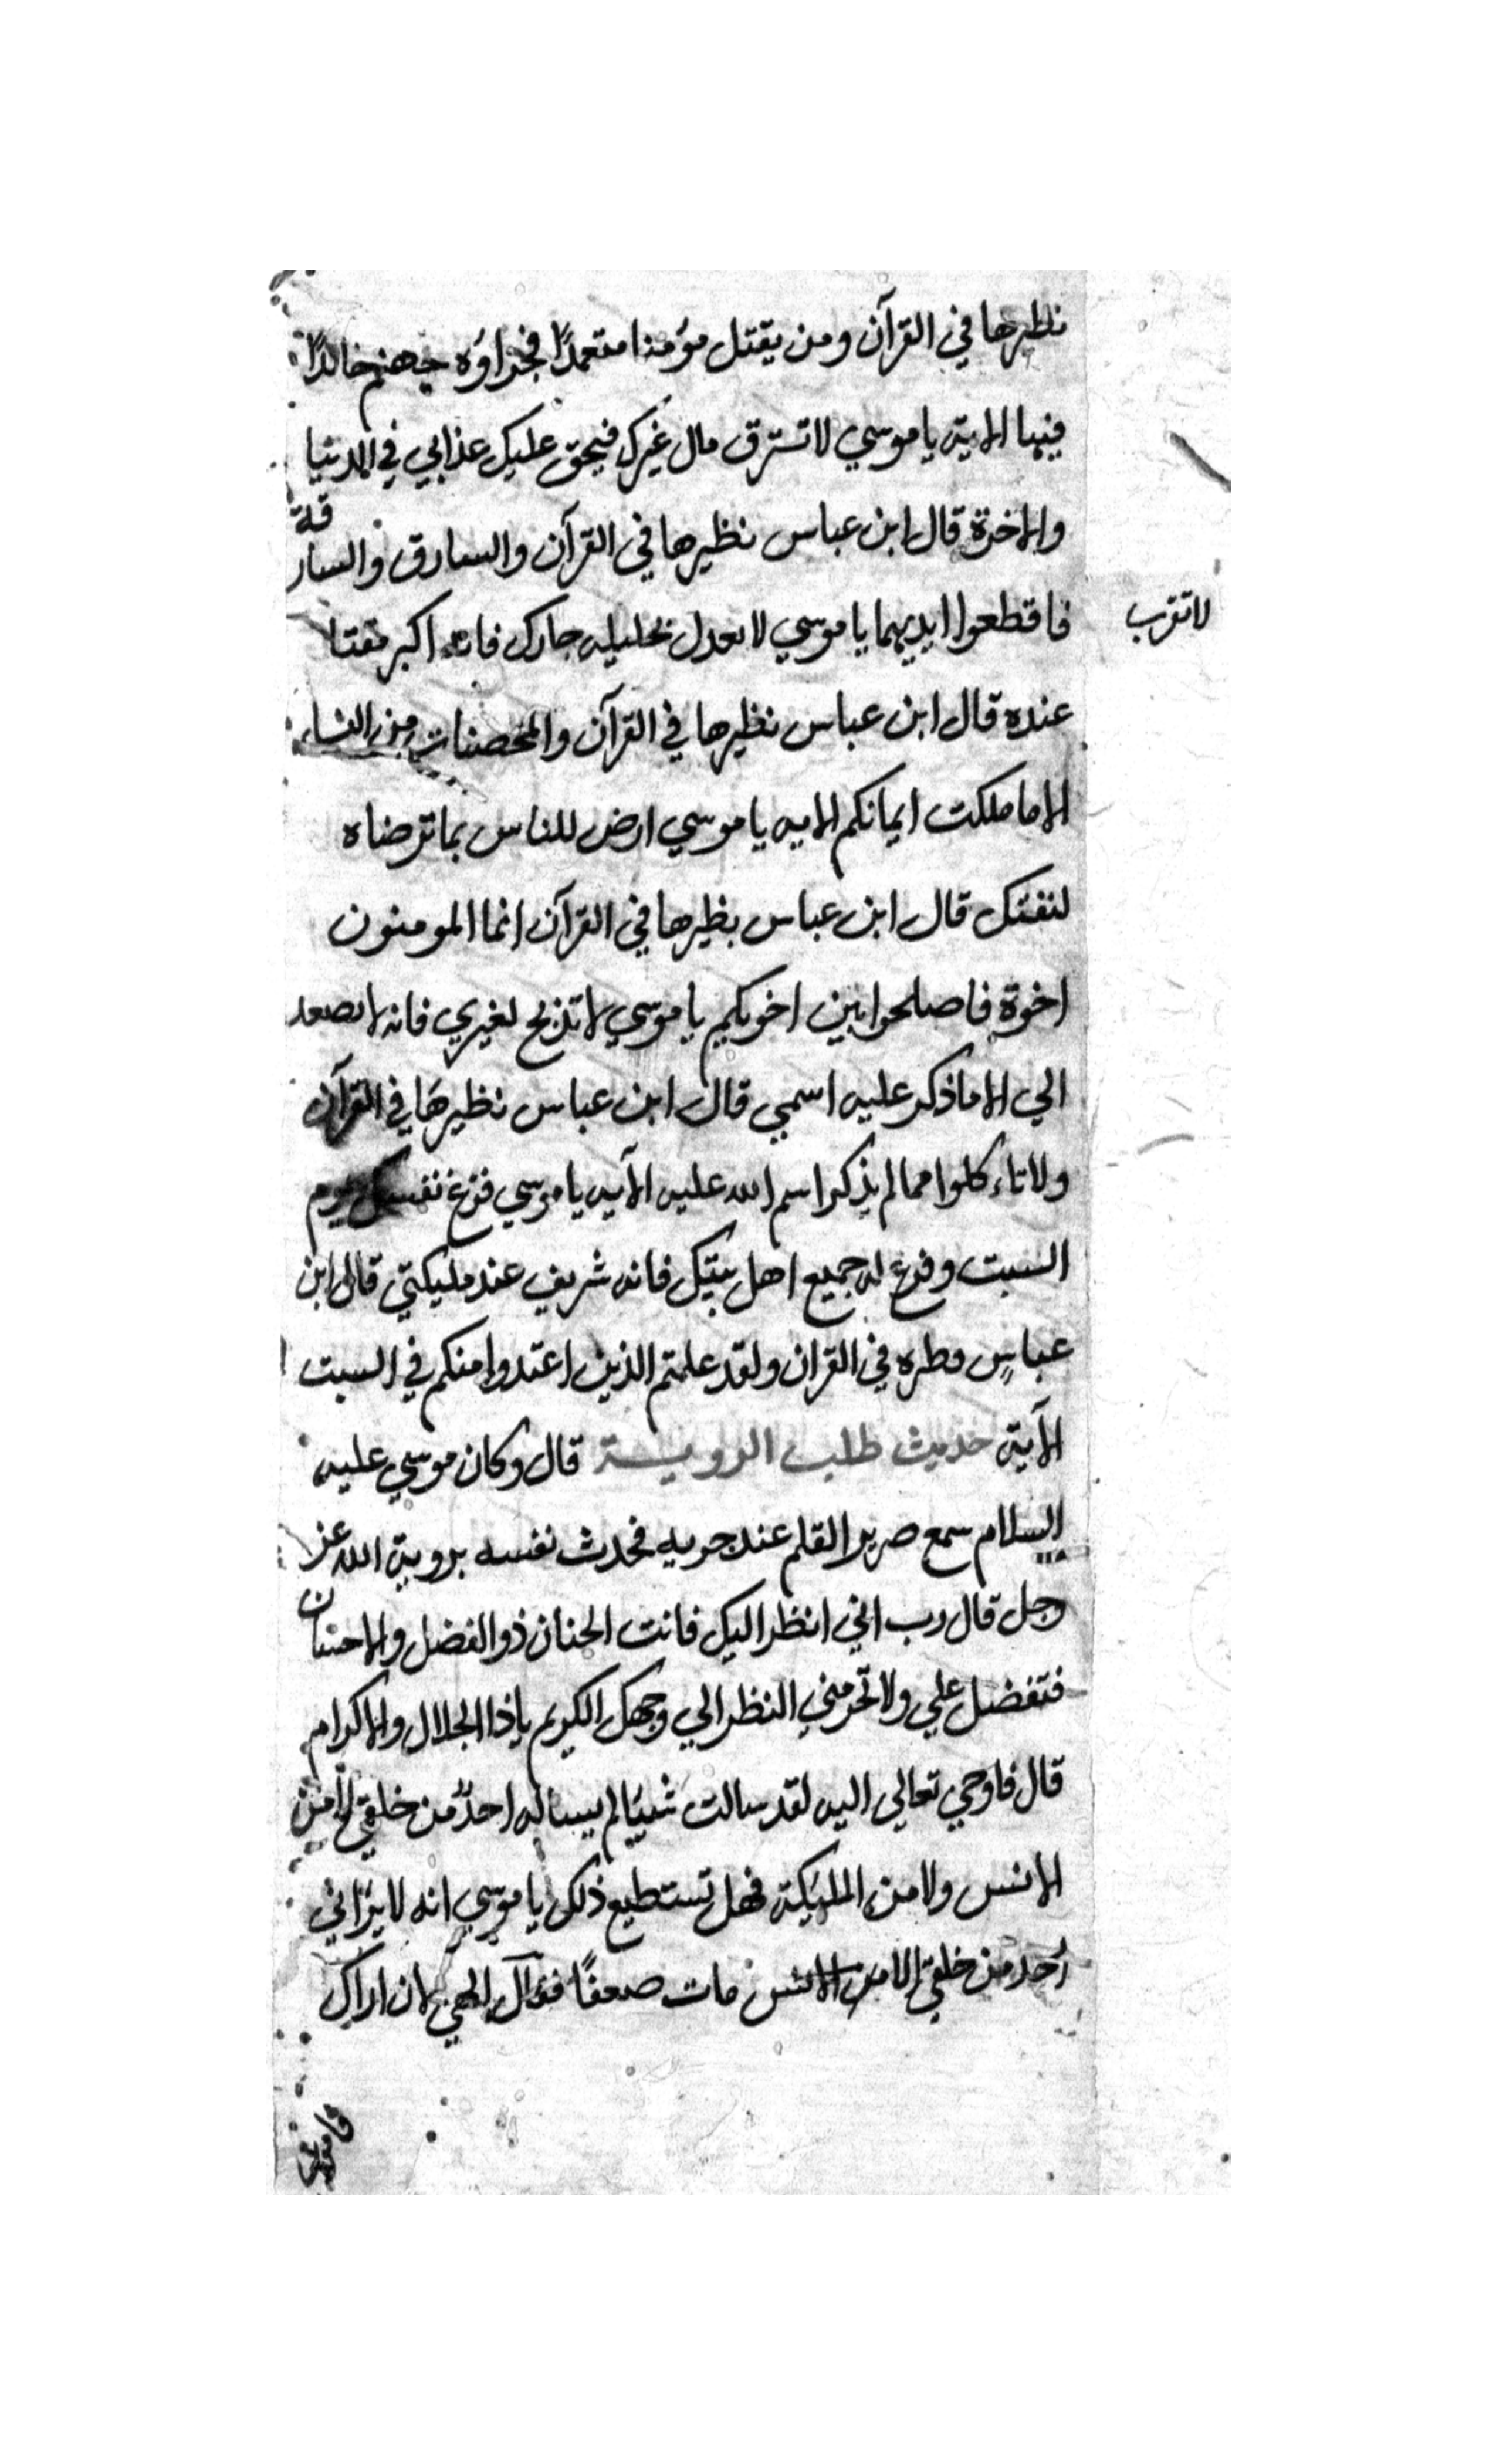 نظيرها في القرآن ومن يقتل مؤمنا متعمدًا فجزاؤه جهنم خالدًا
فيها الايتى ياموسي لا تسترق مال غيرك فيحق عليك عذابي في الدنيا
والاخرة قال ابن عباس نظيرها في القرآن والسارق والسارقة
فاقطعوا ايديهما ياموسي لا تعدل بحليله جارك فانه اكبر مقتا
لا تقرب
عنده قال ابن عباس نظيرها في القرآن والمحصنات من النساء
الا ما ملكت ايمانكم الايه ياموسي ارض للناس بما ترضاه
لنفسك قال ابن عباس نظيرها في القرآن انما المومنون
اخوة فاصلحوا بين اخويكم ياموسي لا تذبح لغيري فانه لا يصعد
الي الا ما ذكر عليه اسمي قال ابن عباس نظيرها في القرآن
ولا تاءكلوا مما لم يذكر اسم الله عليه الآيه ياموسي فرغ نفسك يوم
السبت وفرغ له جميع اهل بيتك فانه شريف عند مليكتي قال ابن
عباس في القران ولقد علمتم الذين اعتدوا منكم في السبت
الآيتى حديث طلب الروية قال وكان موسي عليه
السلام سمع صرير القلم عند جريه فحدث نفسه بروية الله عز
وجل قال رب اني انظر اليك فانت الحنان ذو الفضل والاحسان
فتفضل علي ولا تحرمني النظر الي وجهك الكريم ياذا الجلال والاكرام
قال فاوحي تعالي اليه لقد سالت شيئا لم يساله احدٌ من خلقي لا من
الانس ولا من المليكة فهل تستطيع ذلك ياموسي انه لا يراني
احد من خلقي الا مات صعقًا فقال الهي لان اراك